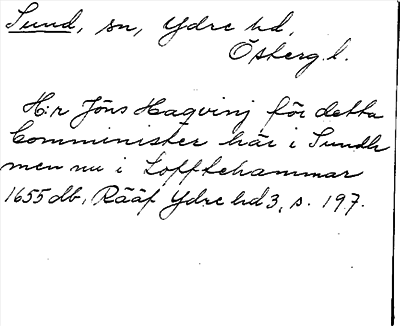 Sund, sn, Ydre hd,
Österg. l.
H:r Jöns Haqvinj för detta
Comminister här i Sundh
men nu i Lofftehammar
1655 db, Rääf Ydre hd 3, s. 197.